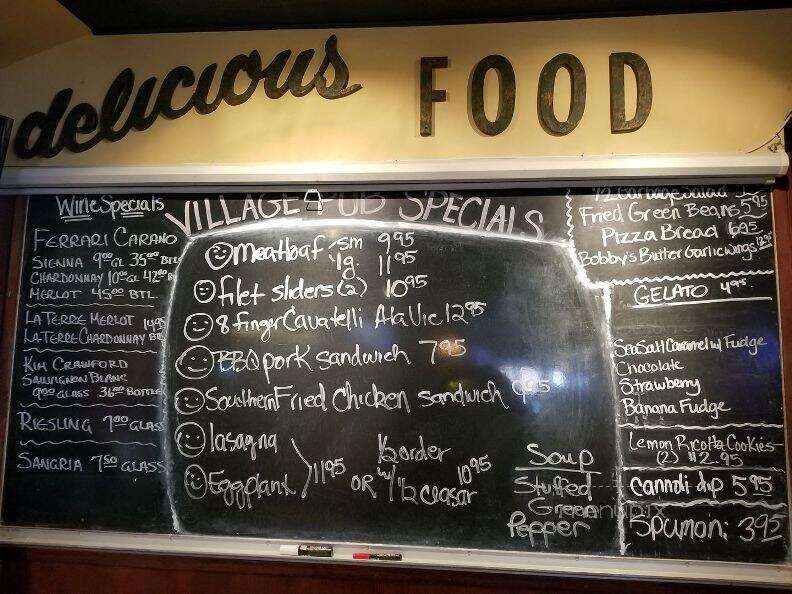 delicious FOOD
Wine Specials
FERRARI CARANO
SIENNA 9⁰⁰ GL 35⁰⁰ BTL
CHARDONNAY 10⁰⁰ GL 42⁰⁰ B
MERLOT 45⁰⁰ BTL
LA TERRE MERLOT 14⁹⁵
LA TERRE CHARDONNAY BTL
KIM CRAWFORD
SAUVIGNON BLANC
9⁰⁰ GLASS 36⁰⁰ BOTTLE
RIESLING 7⁰⁰ GLASS
SANGRIA 7⁵⁰ GLASS
VILLAGE PUB SPECIALS
meatloaf sm 9⁹⁵
lg. 11⁹⁵
filet sliders (2) 10⁹⁵
8 finger Cavatelli Ala Vic 12⁹⁵
BBQ pork sandwich 7⁹⁵
Southern Fried Chicken sandwich 9⁹⁵
lasagna
Eggplant
11⁹⁵ OR
1/2 order
w/ 1/2 ceasar 10⁹⁵
Soup
Stuffed
Green
Pepper
1/2 Garbage Salad
Fried Green Beans 5⁹⁵
Pizza Bread 6⁹⁵
Bobby's Butter Garlic Wings 12⁹⁵
GELATO 4⁹⁵
Sea Salt Caramel w/ Fudge
Chocolate
Strawberry
Banana Fudge
Lemon Ricotta Cookies
(2) $2.95
Cannoli dip 5⁹⁵
Spumoni 3⁹⁵